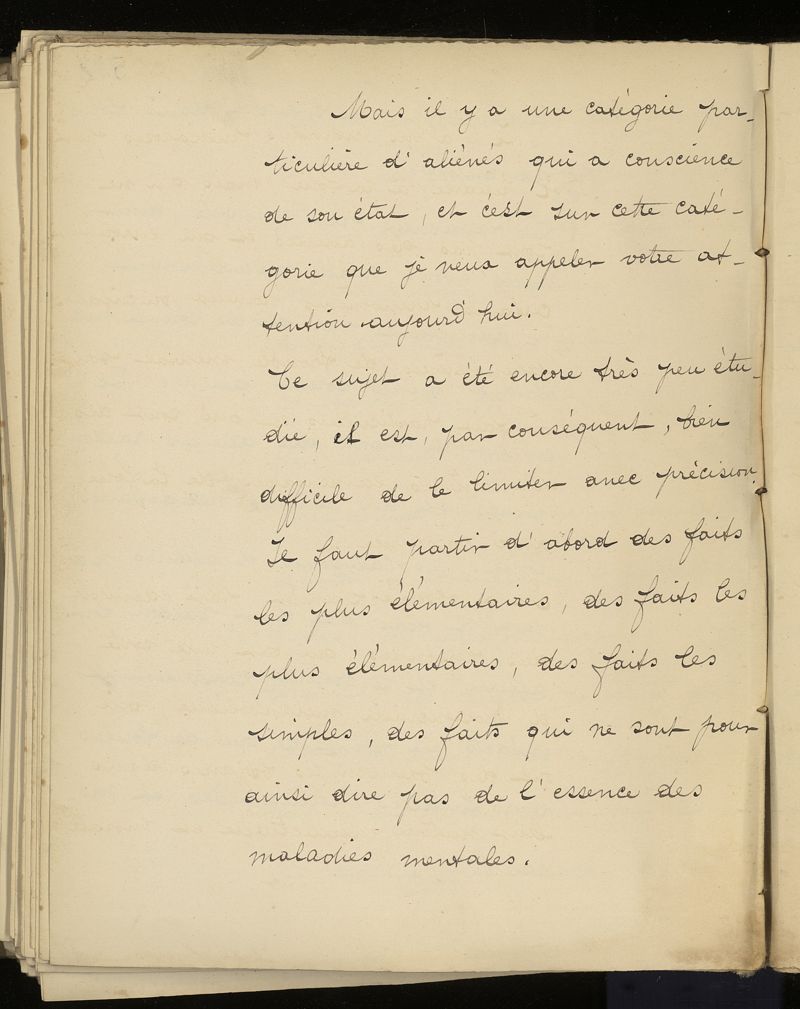 Mais il y a une catégorie par-
ticulière d'aliénés qui a conscience
de son état, et c'est sur cette caté-
gorie que je veux appeler votre at-
tention aujourd'hui.
Ce sujet a été encore très peu étu-
dié, il est, par conséquent, bien
difficile de le limiter avec précision.
Il faut partir d'abord des faits
les plus élémentaires, des faits les
plus élémentaires, des faits les
simples, des faits qui ne sont pour
ainsi dire pas de l'essence des
maladies mentales.